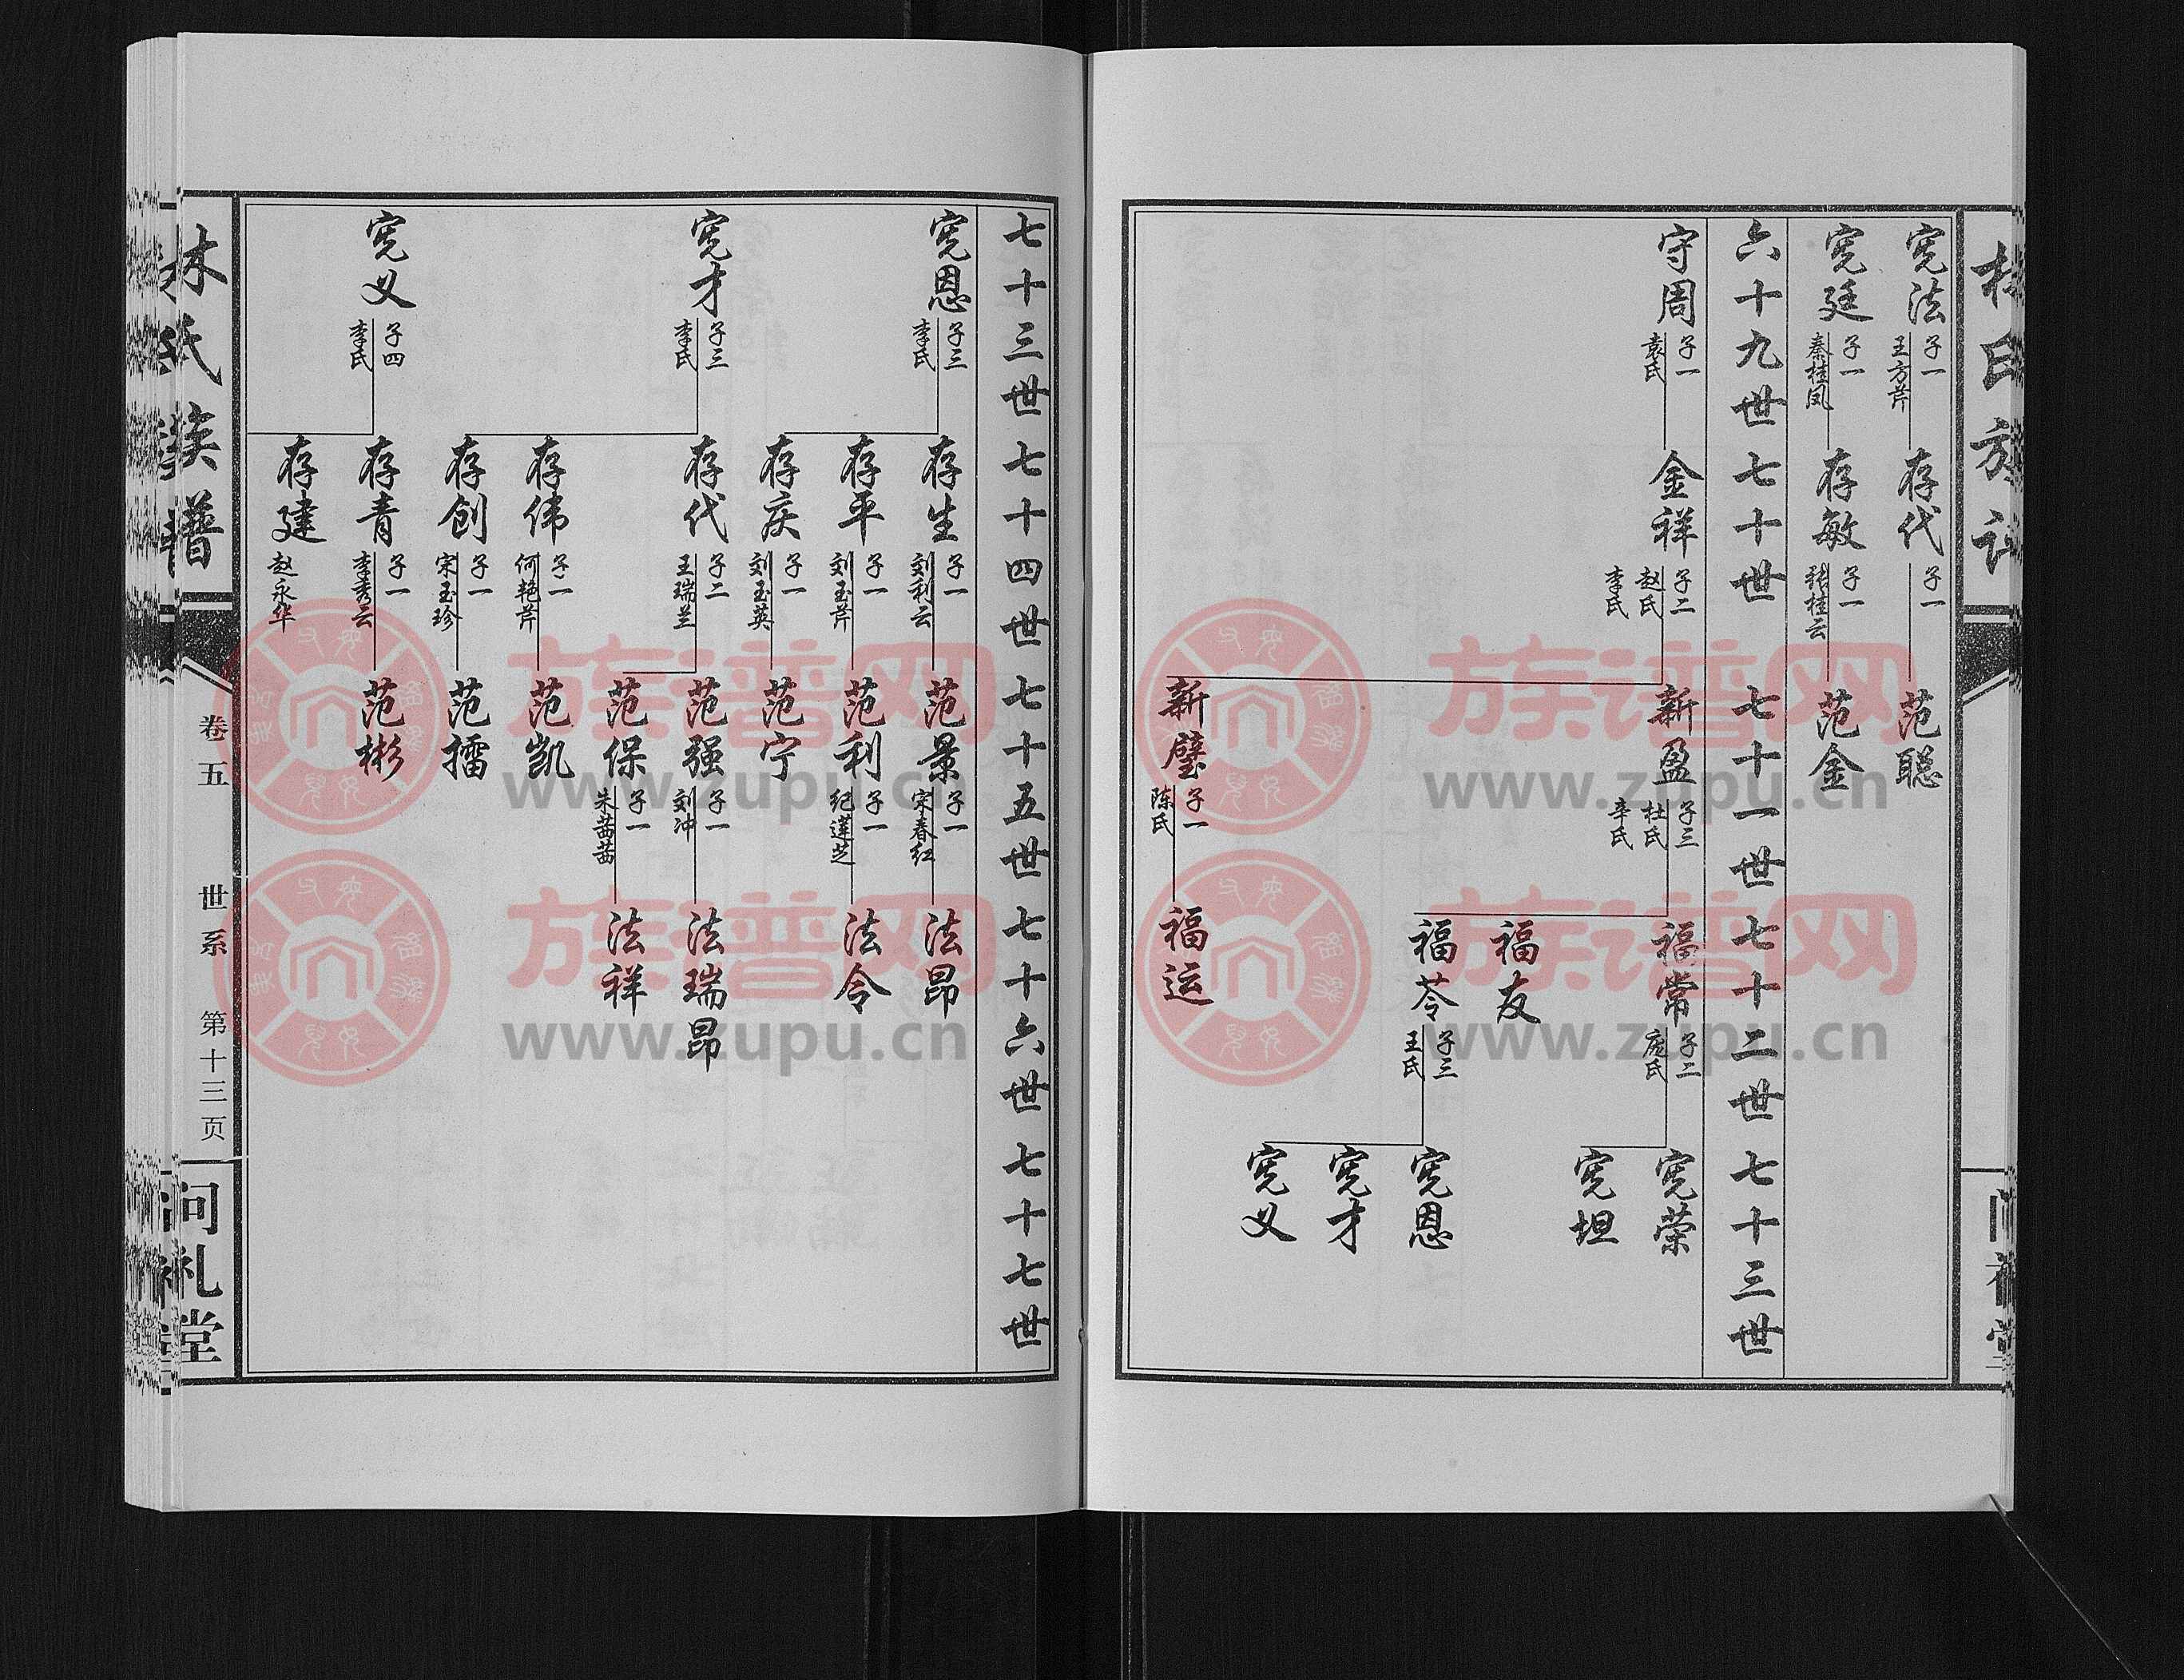 宪法
子一
王方芹
存代
子一
范聪
宪廷
子一
秦桂凤
存敏
子一
张桂云
范金
六十九世
七十世
七十一世
七十二世
七十三世
守周
子一
袁氏
金祥
子二
赵氏
李氏
新盈
子三
杜氏
辛氏
新璧
子一
陈氏
福常
子二
庞氏
福友
福苓
子三
王氏
福运
宪荣
宪坦
宪恩
宪才
宪义
七十三世
七十四世
七十五世
七十六世
七十七世
宪恩
子三
李氏
存生
子一
刘利云
范景
子一
宋春红
法昂
存平
子一
刘玉芹
范利
子一
纪莲芝
法令
存庆
子一
刘玉英
范宁
宪才
子三
李氏
存代
子二
王瑞兰
范强
子一
刘冲
法瑞昂
范保
子一
朱茜茜
法祥
存伟
子一
何艳芹
范凯
存创
子一
宋玉珍
范擂
宪义
子四
李氏
存青
子一
李秀云
范彬
存建
赵永华
林氏族谱
卷五
世系
第十三页
问礼堂
族谱网
www.zupu.cn
族谱网
www.zupu.cn
族谱网
www.zupu.cn
族谱网
www.zupu.cn